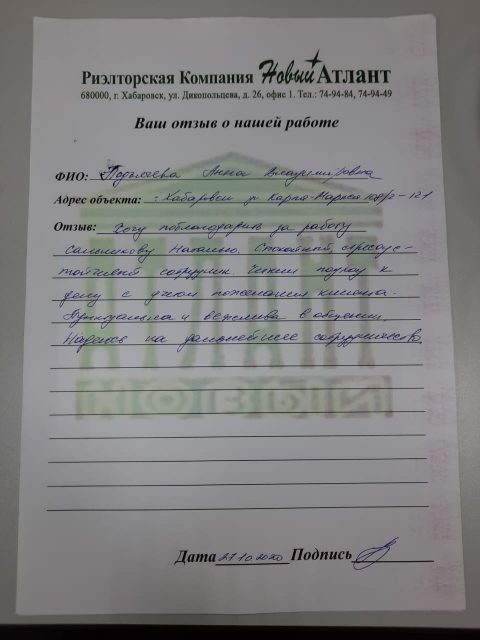 Риэлторская Компания Новый Атлант
680000, г. Хабаровск, ул. Дикопольцева, д. 26, офис 1. Тел.: 74-94-84, 74-94-49
Ваш отзыв о нашей работе
ФИО: Анна Владимировна
Адрес объекта: г. Хабаровск ул Карла-Маркса
Отзыв: Хочу поблагодарить за работу
Наталью. Спокойный, стрессоус-
тойчивый сотрудник. Четкий подход к
делу с учетом пожелания клиента.
Пунктуальна и вежлива в общении.
Надеюсь на дальнейшее сотрудничество.
Дата 27.10.2020 Подпись